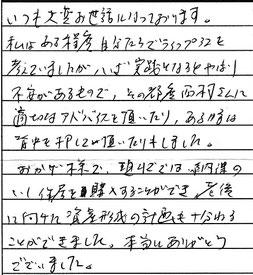 いつも大変お世話になっております。
私はある程度自分たちでライフプランを
考えていましたが、いざ実践となるとやはり
不安があるもので、その都度西村さんに
適切なアドバイスを頂いたり、あるときは
背中を押して頂いたりもしました。
おかげ様で、現在では納得の
いく住居を購入することができ、老後
に向けた資産形成の計画も十分わる
ことができました。本当にありがとう
ございました。